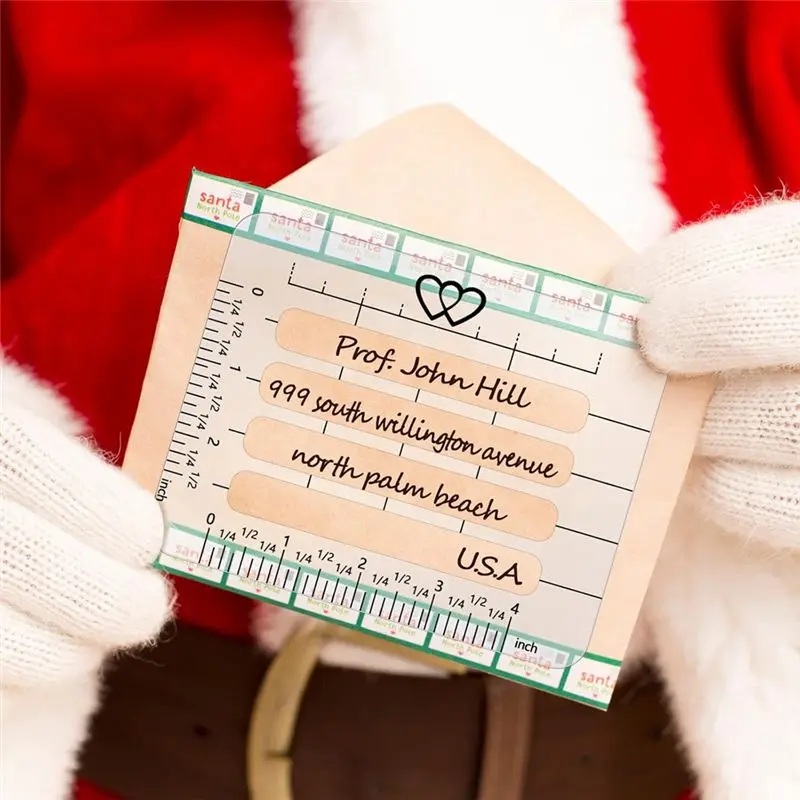 santa
North Pole
santa
santa
santa
santa
santa
santa
0
1/4 1/2 1/4 1
1/4 1/2 1/4 2
1/4 1/2
inch
Prof. John Hill
999 south willington avenue
north palm beach
U.S.A
0 1/4 1/2 1/4 1 1/4 1/2 1/4 2 1/4 1/2 1/4 3 1/4 1/2 1/4 4
inch
santa
North Pole
North Pole
North Pole
North Pole
santa
North Pole
santa
North Pole